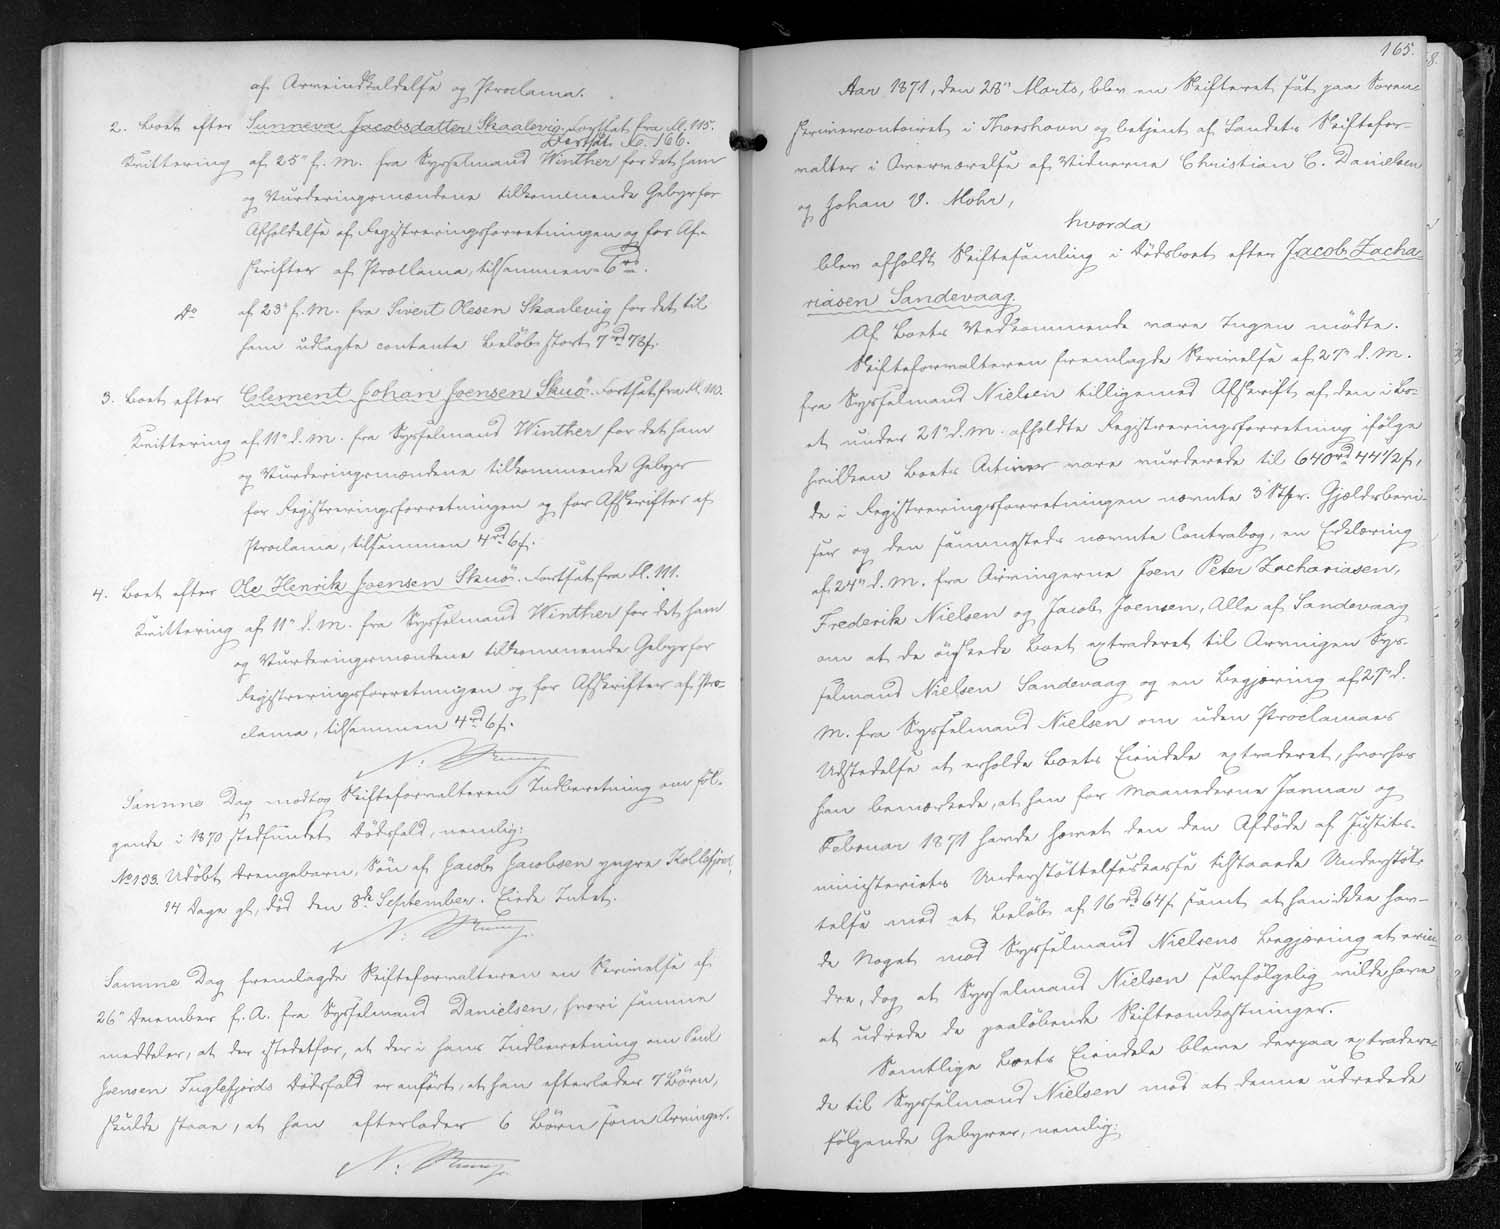 af Arveindkaldelse og Proclama.
2. Boet efter Sunneva Jacobsdatter Skaalevig. Fortsat fra Fl. 115.
Fortsat Fl. 166.
Kvittering af 25" f. M. fra Sysselmand Winther for det ham
og Vurderingsmændene tilkommende Gebyr for
Afholdelse af Registreringsforretningen og for Af-
skrifter af Proclama, tilsammen 6 rd.
Do af 23" f. M. fra Sivert Olesen Skaalevig for det til
ham udlagte contante Beløb stort 7 rd 78 s.
3. Boet efter Clement Johan Joensen Skuø. Fortsat fra Fl. 110.
Kvittering af 11" d. M. fra Sysselmand Winther for det ham
og Vurderingsmændene tilkommende Gebyr
for Registreringsforretningen og for Afskrifter af
Proclama, tilsammen 4 rd 6 s.
4. Boet efter Ole Henrik Joensen Skuø. Fortsat fra Fl. 111.
Kvittering af 11" d. M. fra Sysselmand Winther for det ham
og Vurderingsmændene tilkommende Gebyr for
Registreringsforretningen og for Afskrifter af Pro-
clama, tilsammen 4 rd 6 s.
Samme Dag modtog Skifteforvalteren Indberetning om føl-
gende i 1870 stedfundet Dødsfald, nemlig:
No 133. Udøbt Drengebarn, Søn af Jacob Jacobsen yngre Kollefjord,
14 Dage gl., død den 8de September. Eiede Intet.
Samme Dag fremlagde Skifteforvalteren en Skrivelse af
26" December f. A. fra Sysselmand Danielsen, hvori samme
meddeler, at der istedetfor, at der i hans Indberetning om Poul
Joensen Fuglefjords Dødsfald er anført, at han efterlader 7 Børn,
skulde staae, at han efterlader 6 Børn som Arvinger.
165.
Aar 1871, den 28" Marts, blev en Skifteret sat paa Soren-
skrivercontoiret i Thorshavn og betjent af Landets Skiftefor-
valter i Overværelse af Vidnerne Christian C. Danielsen
og Johan V. Mohr,
hvorda
blev afholdt Skiftesamling i Dødsboet efter Jacob Zacha-
riasen Sandevaag.
Af Boets Vedkommende vare Ingen mødte.
Skifteforvalteren fremlagde Skrivelse af 27" d. M.
fra Sysselmand Nielsen tilligemed Afskrift af den i Bo-
et under 21" d. M. afholdte Registreringsforretning ifølge
hvilken Boets Activer vare vurderede til 640 rd 44 1/2 s,
de i Registreringsforretningen nævnte 3 Stkr. Gjældsbevi-
ser og den sammesteds nævnte Contrabog, en Erklæring
af 24" d. M. fra Arvingerne Joen Peter Zachariasen,
Frederik Nielsen og Jacob Joensen, Alle af Sandevaag
om at de ønskede Boet extraderet til Arvingen Sys-
selmand Nielsen Sandevaag og en Begjæring af 27" d.
M. fra Sysselmand Nielsen om uden Proclamaes
Udstedelse at erholde Boets Eiendele extraderet, hvorhos
han bemærkede, at han for Maanederne Januar og
Februar 1871 havde hævet den den Afdøde af Justits-
ministeriets Understøttelseskasse tilstaaede Understøt-
telse med et Beløb af 16 rd 64 s samt at han ikke hav-
de Noget mod Sysselmand Nielsens Begjæring at erin-
dre, dog at Sysselmand Nielsen selvfølgelig vilde have
at udrede de paaløbende Skifteomkostninger.
Samtlige Boets Eiendele bleve derpaa extradere-
de til Sysselmand Nielsen mod at denne udredede
følgende Gebyrer, nemlig: